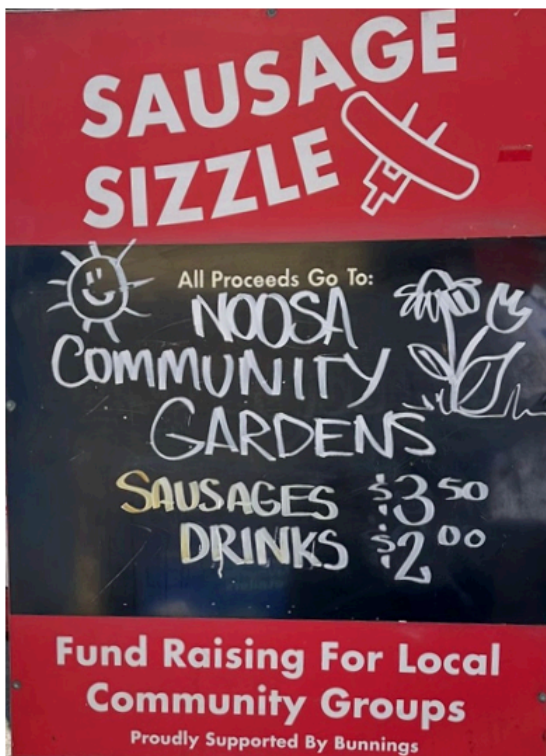 SAUSAGE
SIZZLE
All Proceeds Go To:
NOOSA
COMMUNITY
GARDENS
SAUSAGES $3.50
DRINKS $2.00
Fund Raising For Local
Community Groups
Proudly Supported By Bunnings